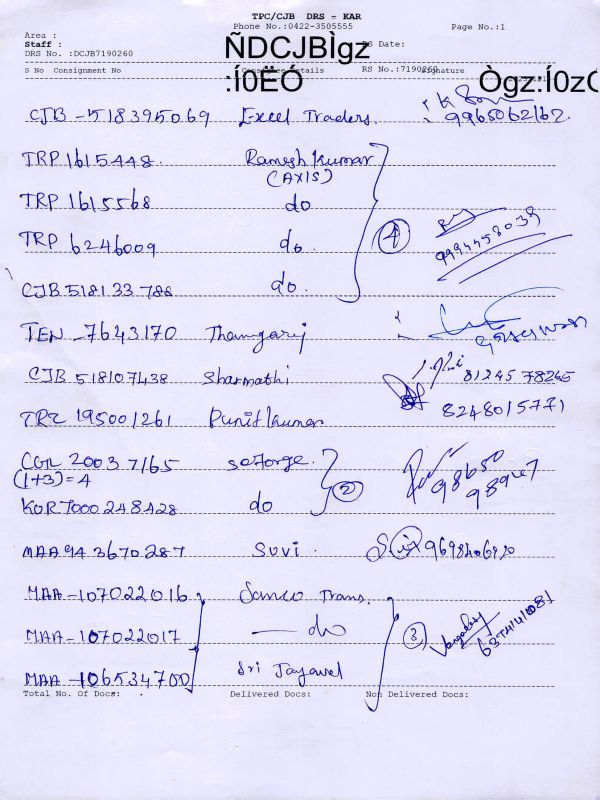 TPC/CJB DRS = KAR
Phone No.:0422-3505555 Page No.:1
Area :
Staff : Date:
DRS No. :DCJB7190260 ÑDCJBÌgz
S No Consignment No Consignee Details RS No.:7190260 Signature
:Í0ËÓ Ògz:Í0z
CJB -518395069 Excel Traders. 9965062162.
TRP 1615448 Ramesh Kumar
(AXIS)
TRP 1615568 do
TRP 6246009 do. 4 9994458039
CJB 518133788 do.
TEN -7643170 Thangaraj
CJB 518107438 Sharmathi 8124578245
TRZ 195001261 Punitkumar 8248015771
CGL 20037165 98650
(1+3)=4 2 98947
KOR7000248428 do
MAA943670287 Suvi. 9698406920
MAA-107022016 Samco Trans.
MAA-107022017 do 3
MAA-106534700 Sri Jayavel
Total No. Of Docs: Delivered Docs: Non Delivered Docs: